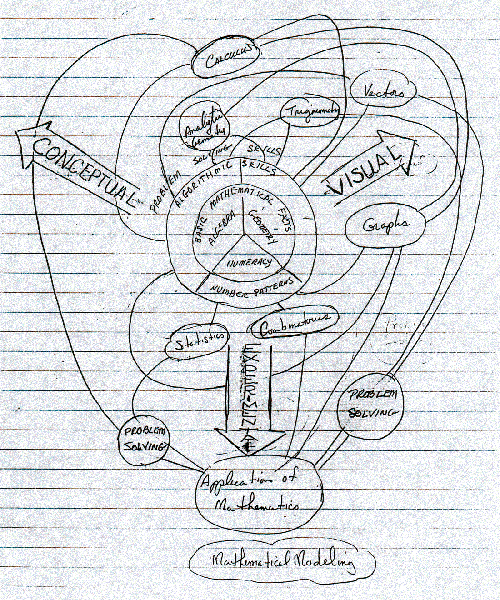 CALCULUS
Vectors
Analytic
Geometry
Trigonometry
CONCEPTUAL
VISUAL
PROBLEM SOLVING SKILLS
ALGORITHMIC SKILLS
BASIC MATHEMATICAL FACTS
ALGEBRA
GEOMETRY
Graphs
NUMERACY
NUMBER PATTERNS
Statistics
Combinatorics
PROBLEM
SOLVING
PROBLEM
SOLVING
Application of
Mathematics
Mathematical Modeling